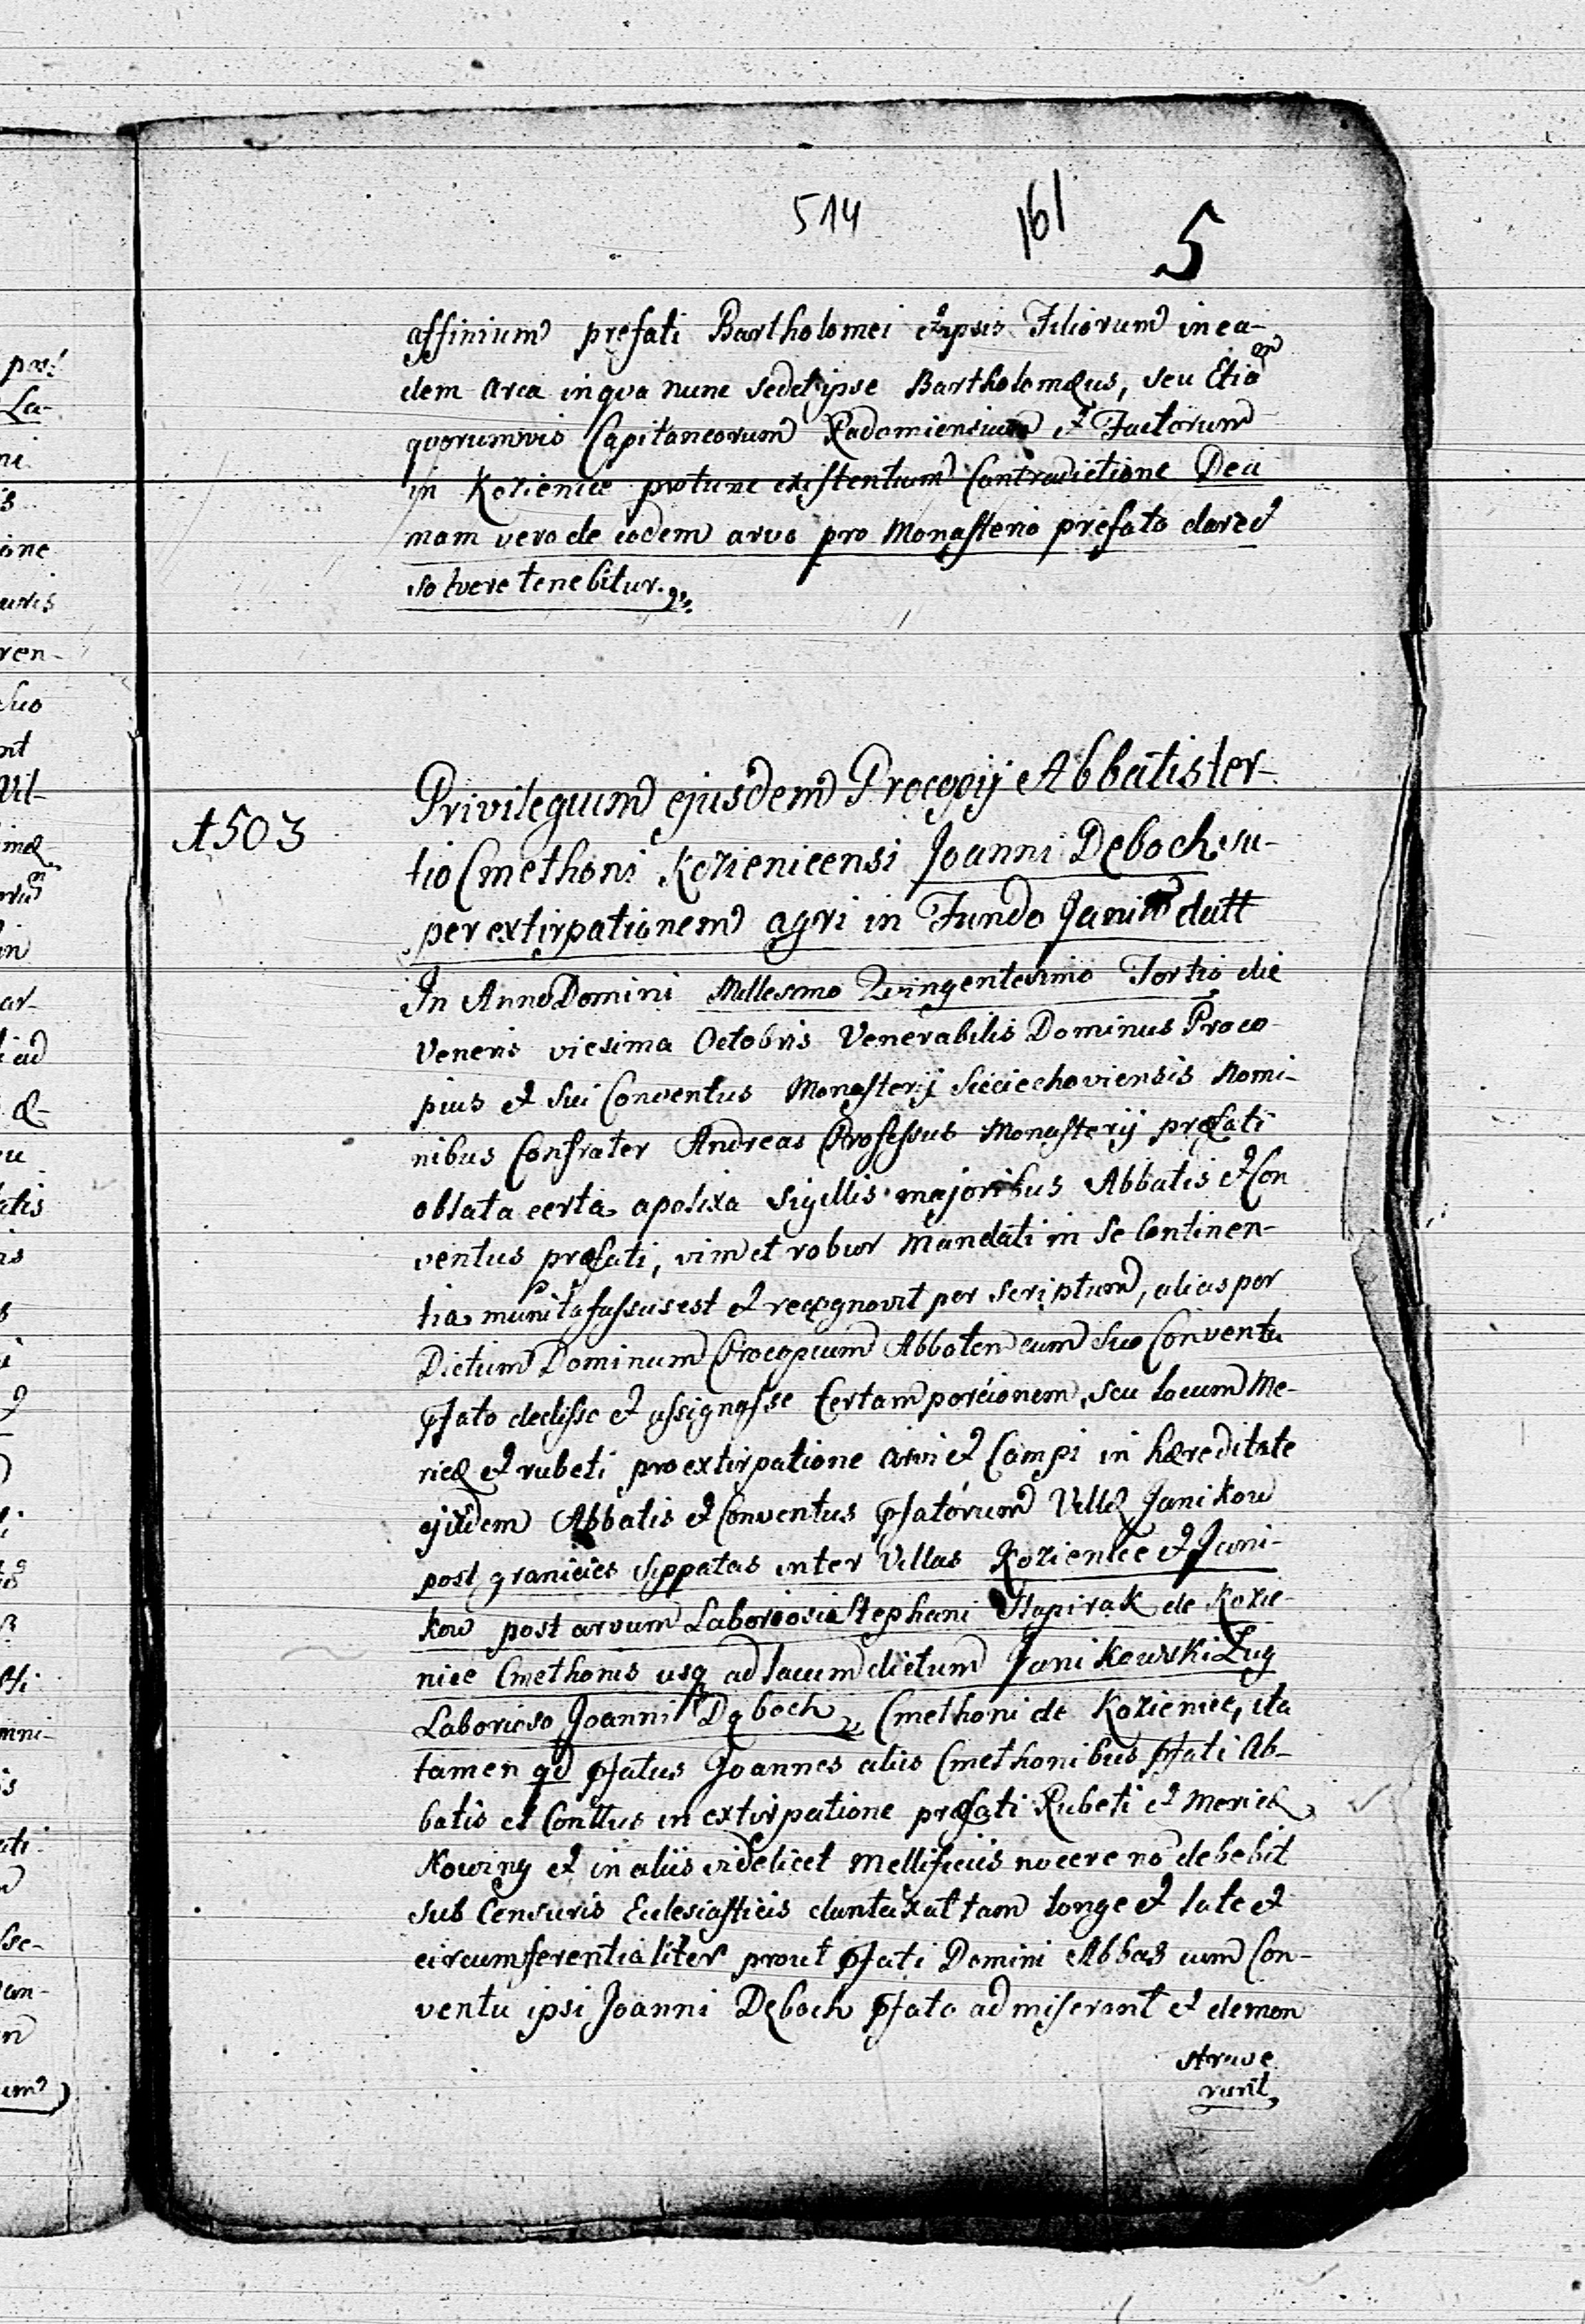 514 161 5
affinium prefati Bartholomei et ipsis Filiorum in ea-
dem area in qva nunc sedet ipse Bartholomæus, seu Etiã
qvorumvis Capitaneorum Radomiensium et Factorum
in Kozienice protunc existentium Contradictione Deci
mam vero de eodem arvo pro Monasterio prefato dare et
solvere tenebitur.
1503
Privilegium ejusdem Procopij Abbatis ter-
tio Cmethoni Kozienicensi Joanni Deboch su-
per extirpationem agri in Fundo Janiko datt
In Anno Domini Millesimo Qvingentesimo Tertio die
Veneris vicesima Octobris Venerabilis Dominus Proco-
pius et sui Conventus Monasterij Sieciechoviensis Nomi-
nibus Confrater Andreas Professus Monasterij præfati
oblata certa apolixa Sigillis majoribus Abbatis et Con
ventus præfati, vim et robur Mandati in se Continen-
tia munita fassus est et recognovit per scriptum, alias per
Dictum Dominum Procopium Abbatem cum suo Conventu
pfato dedisse et assignasse Certam porcionem, seu locum Me-
ricæ et rubeti pro extirpatione arvi et Campi in hæreditate
ejusdem Abbatis et Conventus pfatorum Villæ Janikow
post granicies sippatas inter Villas Kozienice et Jani-
kow post arvum Laboriosi Stephani Slapirak de Kozie-
nice Cmethonis usq ad lacum dictum Janikowski Lug
Laborioso Joanni Dęboch Cmethoni de Kozienice, ita
tamen qd pfatus Joannes aliis Cmethonibus pfati Ab-
batis et Conttus in extirpatione præfati Rubeti et Mericæ
Nowiny et in aliis videlicet Mellificiis nocere nõ debebit
sub Censuris Eclesiasticis duntaxat tam longe et late et
circumferentialiter prout pfati Domini Abbas cum Con-
ventu ipsi Joanni Dęboch pfato admiserunt et demon
strave
runt